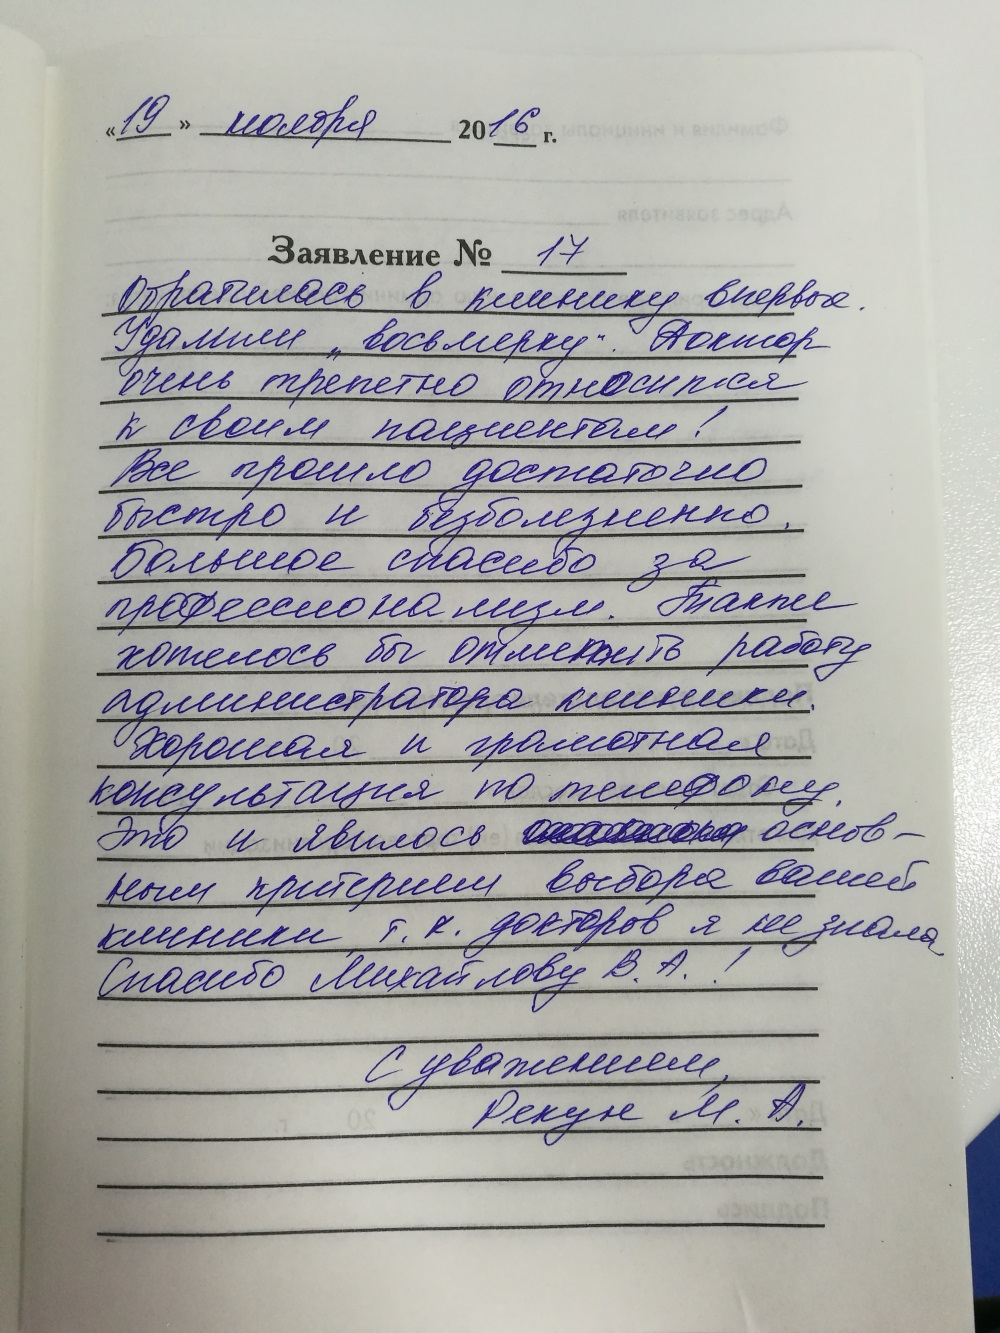 «19» ноября 2016 г.
Заявление № 17
Обратилась в клинику впервые.
Удалили „восьмерку". Доктор
очень трепетно относится
к своим пациентам!
Все прошло достаточно
быстро и безболезненно.
Большое спасибо за
профессионализм. Также
хотелось бы отметить работу
администратора клиники.
Хорошая и грамотная
консультация по телефону.
Это и явилось основ-
ным критерием выбора вашей
клиники т.к. докторов я не знала
Спасибо Михайлову В.А.!
С уважением,
Рекун М.А.